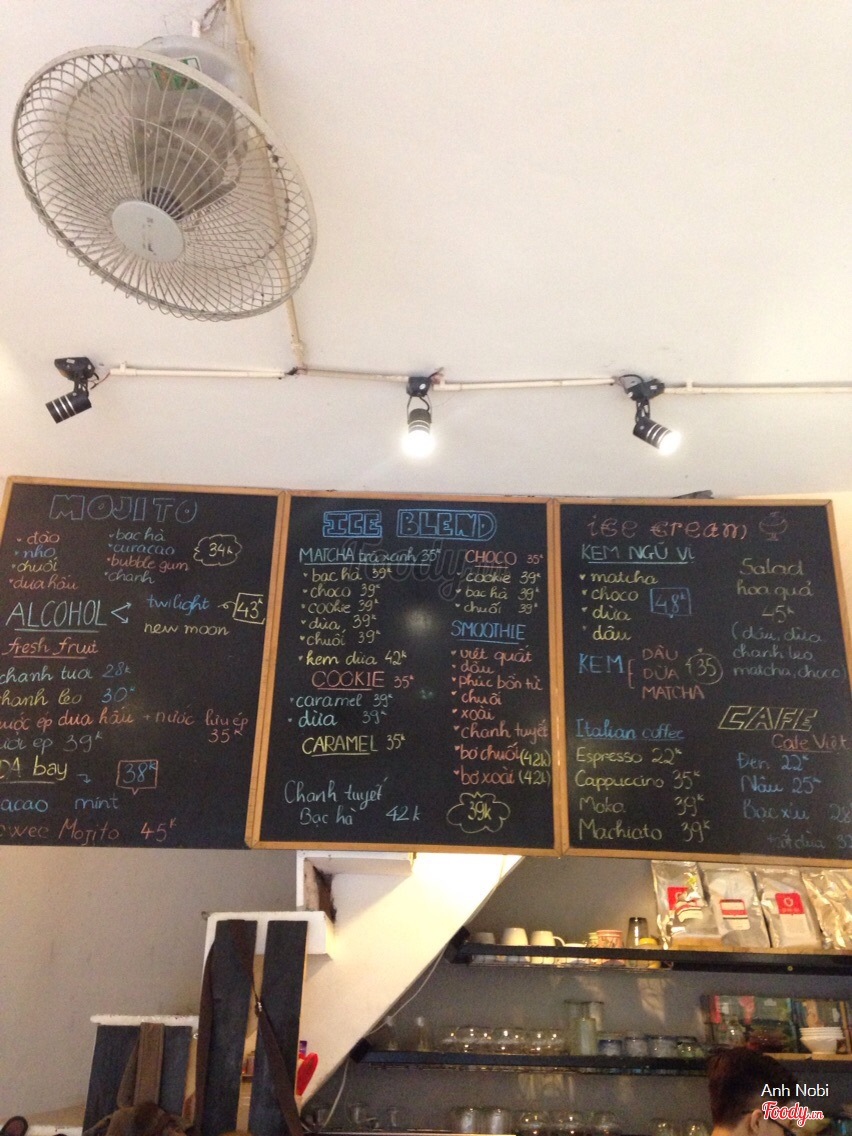 MOJITO
• đào
• nho
• chuối
• dưa hấu
• bạc hà
• curacao
• bubble gum
• chanh
34k
ALCOHOL
twilight
new moon
43k
fresh fruit
chanh tua 28k
chanh leo 30k
nước ép dưa hấu + nước lựu ép
35k
ép 39k
bay
38k
cacao mint
Mojito 45k
ICE BLEND
MATCHA trà xanh 35k
bạc hà 39k
choco 39k
cookie 39k
dừa 39k
chuối 39k
kem dừa 42k
COOKIE 35k
caramel 39k
dừa 39k
CARAMEL 35k
Chanh tuyết
Bạc hà 42k
CHOCO 35k
cookie 39k
bạc hà 39k
chuối 39k
SMOOTHIE
việt quất
dâu
phúc bồn tử
chuối
xoài
chanh tuyết
bơ chuối (42k)
bơ xoài (42k)
39k
ice cream
KEM NGŨ VỊ
matcha
choco
dừa
dâu
48k
KEM
DÂU
DỪA
MATCHA
35
Salad
hoa quả
45k
(dâu, dừa
chanh leo
matcha, choco)
Italian coffee
Espresso 22k
Cappuccino 35k
Moka 39k
Machiato 39k
CAFE
Cafe Việt
Đen 22k
Nâu 25k
Bạc xỉu 28k
cốt dừa 32
Anh Nobi
Foody.vn